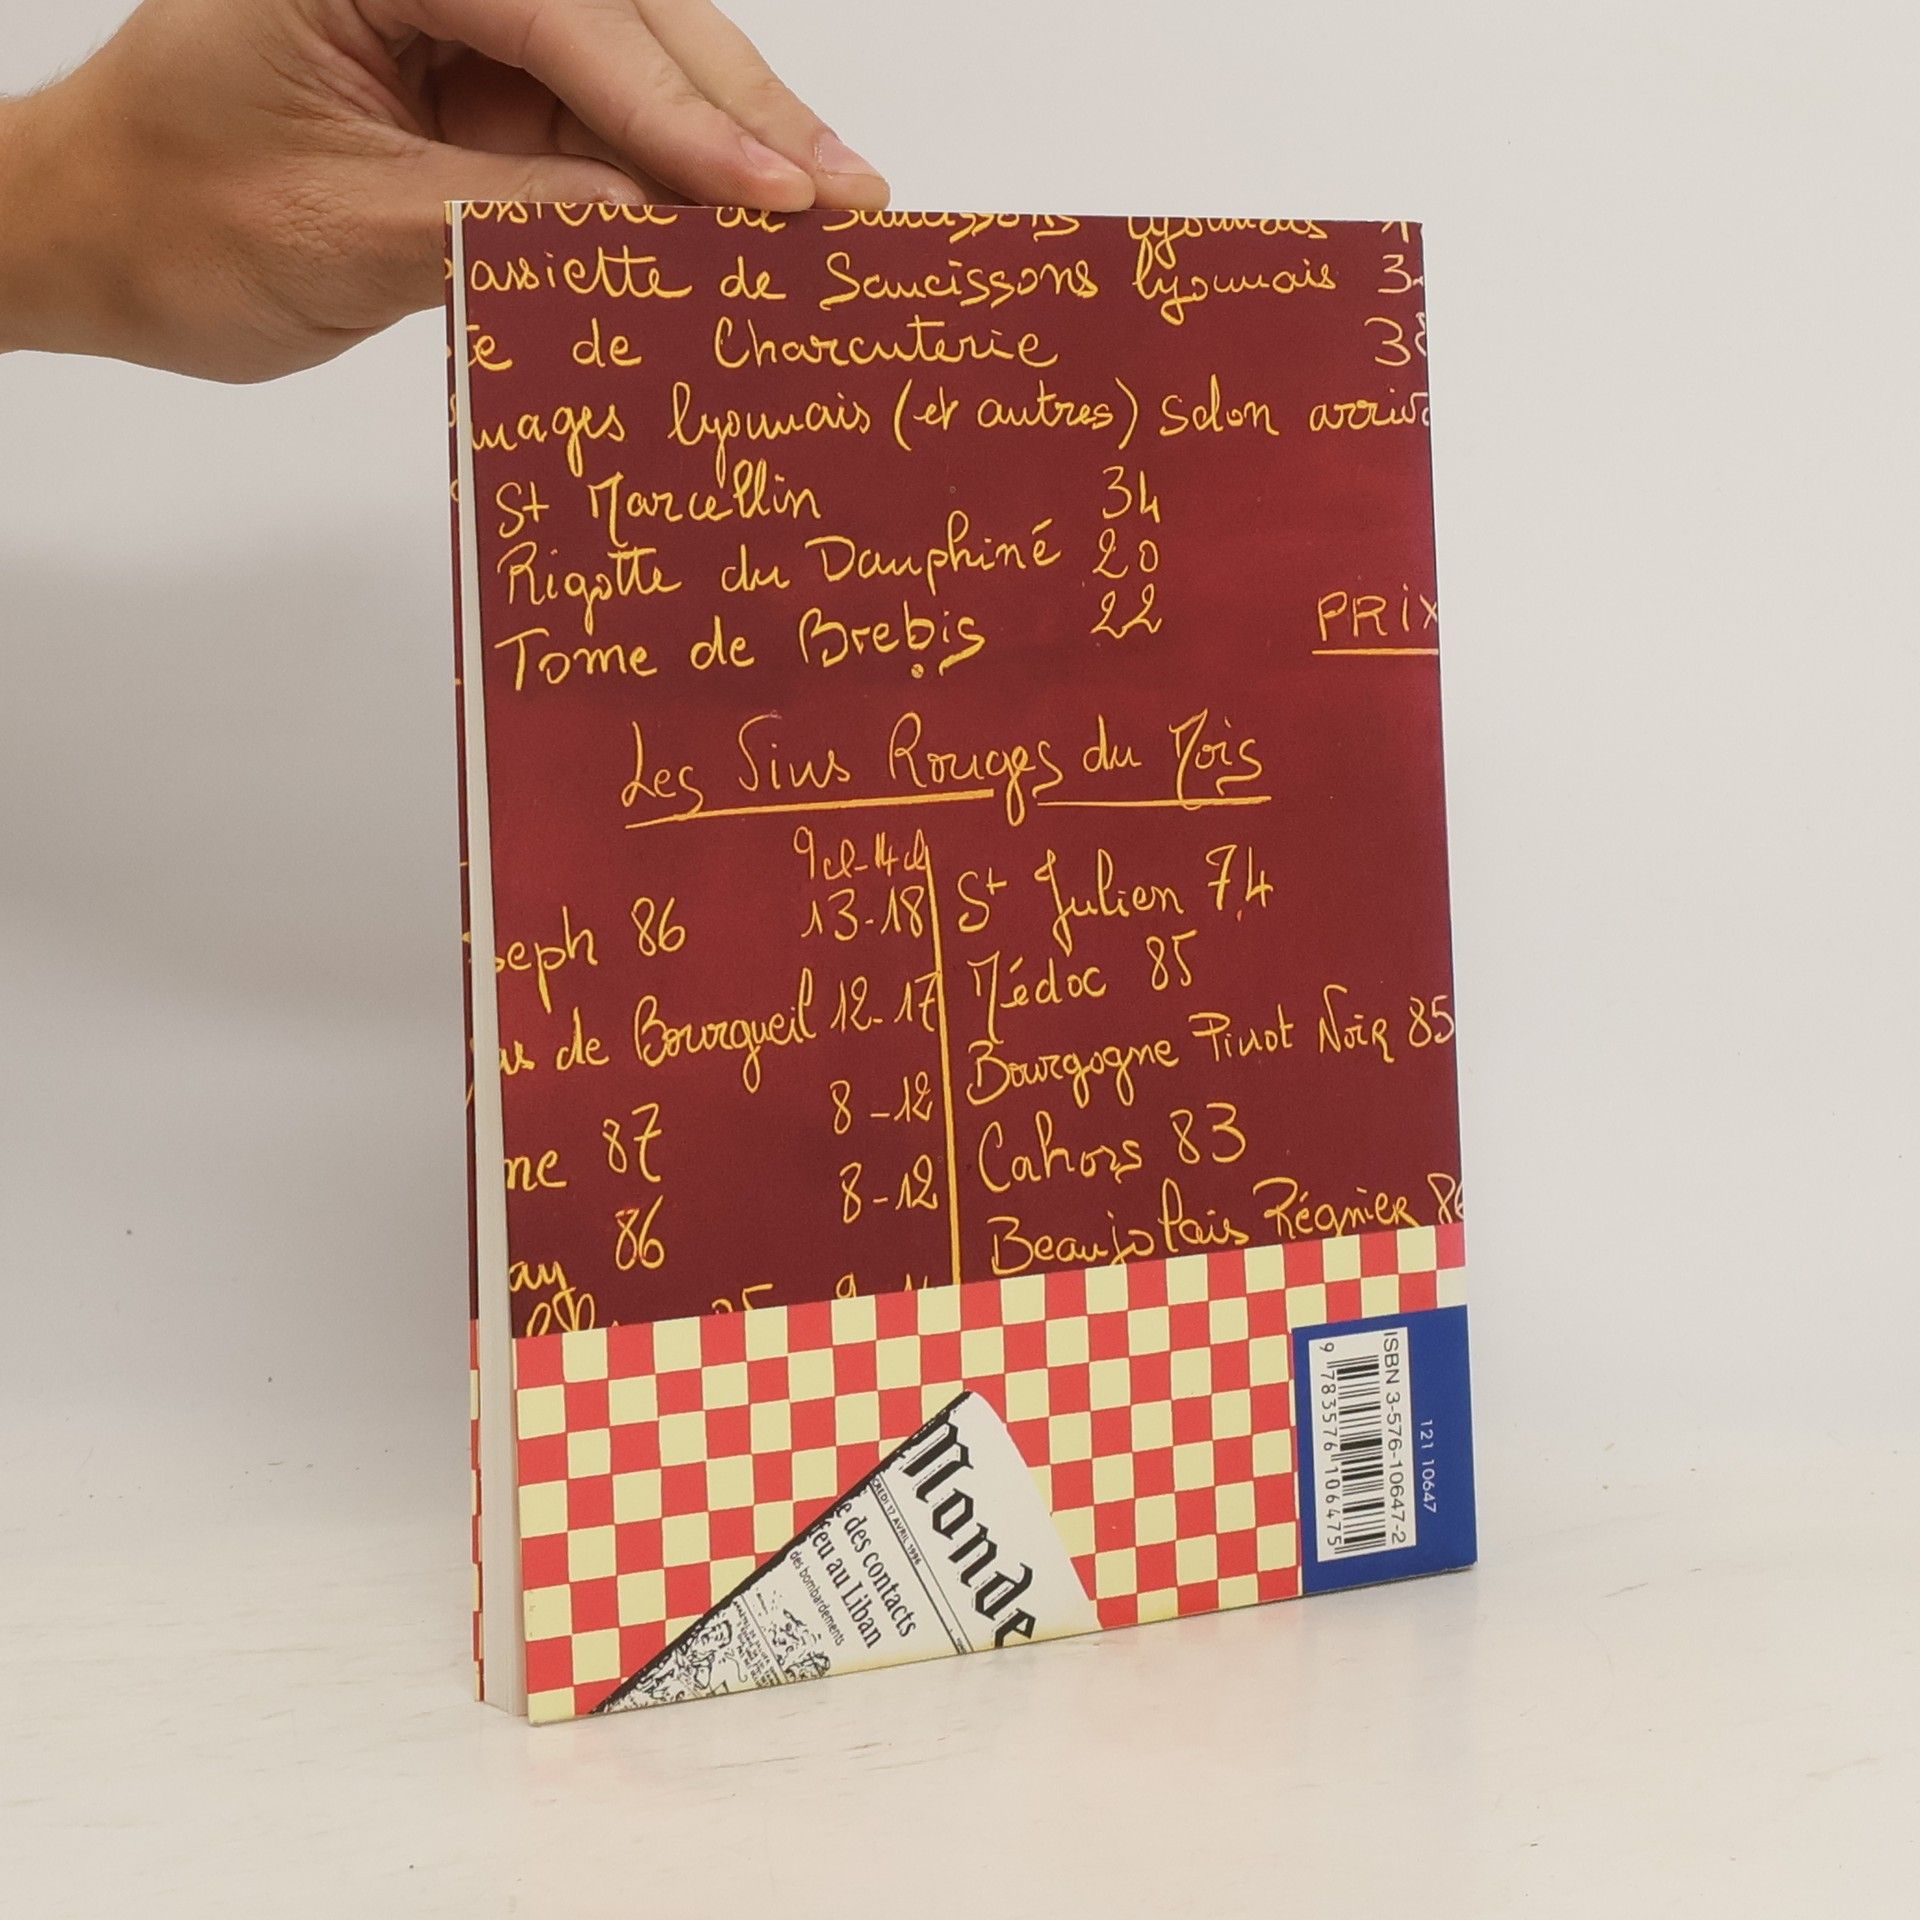 assiette de Saucissons lyonnais
assiette de Saucissons lyonnais 3
te de Charcuterie 38
mages lyonnais (et autres) Selon arriva
St Marcellin 34
Rigotte du Dauphiné 20
Tome de Brebis 22
PRIX
Les Vins Rouges du Mois
9cl-14cl
seph 86 13-18
us de Bourgueil 12-17
ne 87 8-12
ay 86 8-12
St Julien 74
Médoc 85
Bourgogne Pinot Noir 85
Cahors 83
Beaujolais Régnier 86
Monde
CREDI 17 AVRIL 1996
e des contacts
feu au Liban
des bombardements
ISBN 3-576-10647-2
9 783576 106475
121 10647